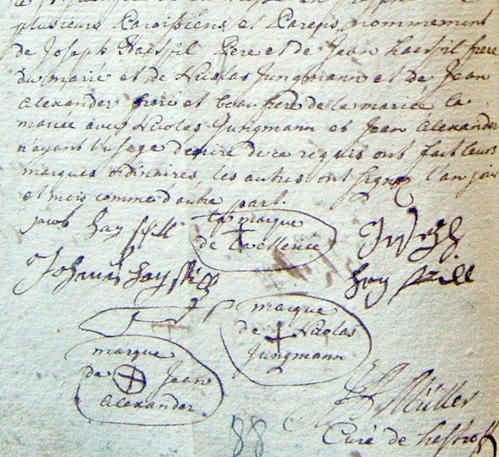 plusieurs Paroissiens et Parens, nommement
de Joseph Haesfil Pere et de Jean haesfil frere
du marié et de Nicolas Jungmann et de Jean
Alexander frere et beaufrere de la mariée la
mariée avec Nicolas Jungmann et Jean Alexander
n'ayant l'usage d'écrire de ce requis ont fait leurs
marques ordinaires, les autres ont signez l'an jour
et mois comme d'autre part.
jacob hay still
la marque
de la ellerice
Johanes hay still
hay still
marque
de Nicolas
Jungmann
marque
de Jean
Alexander
Müller
Curé de
88